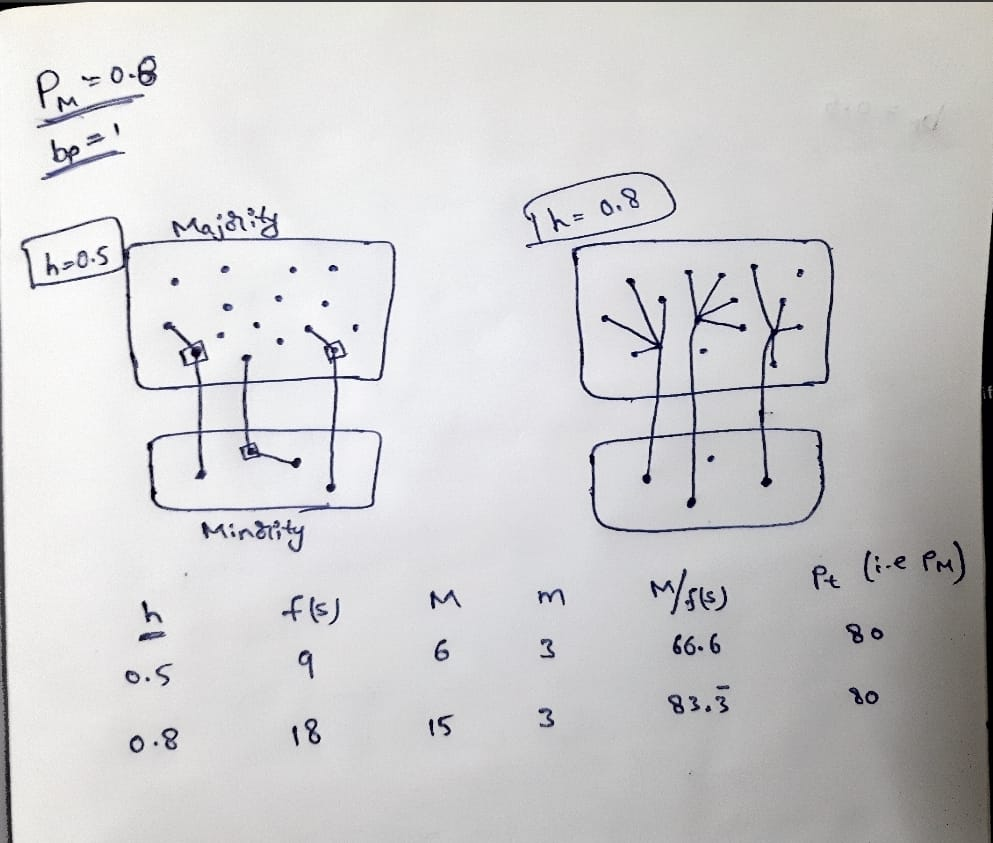 PM = 0.8
bp = 1
h=0.5
Majority
h= 0.8
Minority
h f(s) M m M/f(s) Pt (i.e PM)
0.5 9 6 3 66.6 80
0.8 18 15 3 83.3̅ 80